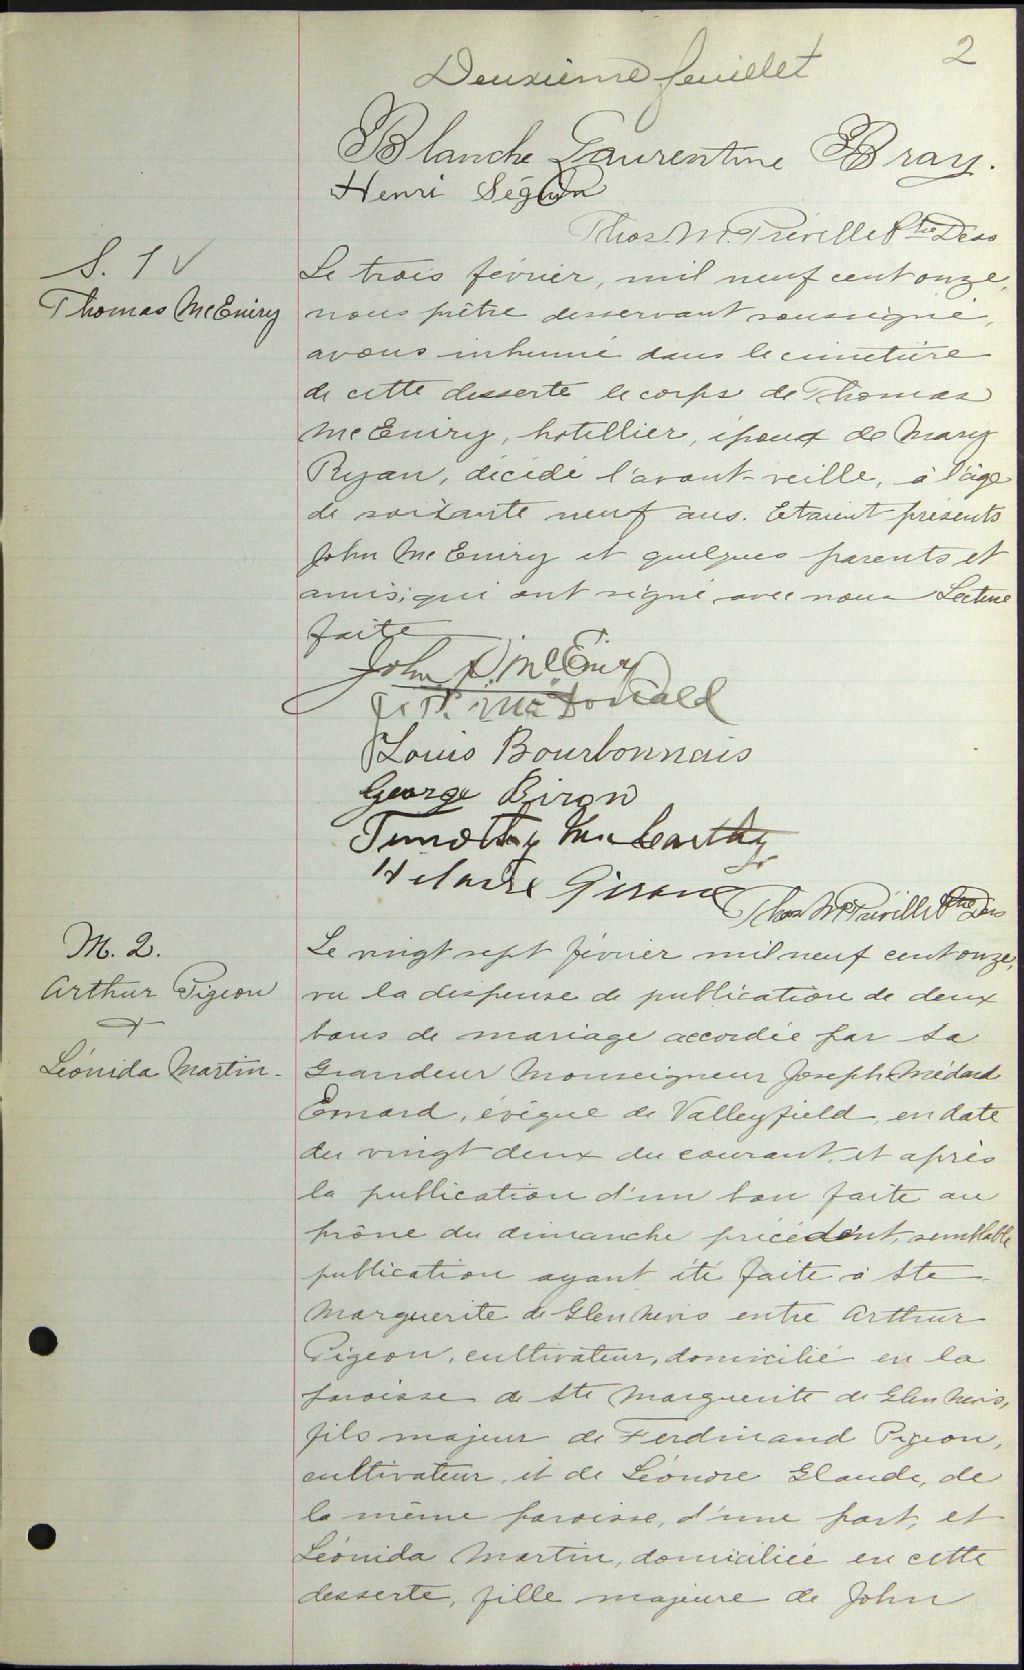 2
Deuxième feuillet
Blanche Laurentine Bray.
Henri Séguin
Thos. M. Préville Ptre Dess
S. 1 √
Thomas McEniry
Le trois février, mil neuf cent onze,
nous prêtre desservant soussigné,
avons inhumé dans le cimetière
de cette desserte le corps de Thomas
McEniry, hotellier, époux de Mary
Ryan, décédé l'avant-veille, à l'âge
de soixante neuf ans. Etaient présents
John McEniry et quelques parents et
amis; qui ont signé avec nous Lecture
faite
John McEniry
McDonald
Louis Bourbonnais
George Biron
Timothy McCarthy
Hilaire Giroux
Thos. M. Préville Ptre Dess
M. 2.
Arthur Pigeon
+
Léonida Martin -
Le vingt sept février mil neuf cent onze,
vu la dispense de publication de deux
bans de mariage accordée par Sa
Grandeur Monseigneur Joseph Médard
Emard, évêque de Valleyfield, en date
du vingt deux du courant, et après
la publication d'un ban faite au
prône du dimanche précédent, semblable
publication ayant été faite à Ste
Marguerite de Glen Nevis entre Arthur
Pigeon, cultivateur, domicilié en la
paroisse de Ste Marguerite de Glen Nevis,
fils majeur de Ferdinand Pigeon,
cultivateur, et de Léonore Glaude, de
la même paroisse, d'une part, et
Léonida Martin, domiciliée en cette
desserte, fille majeure de John